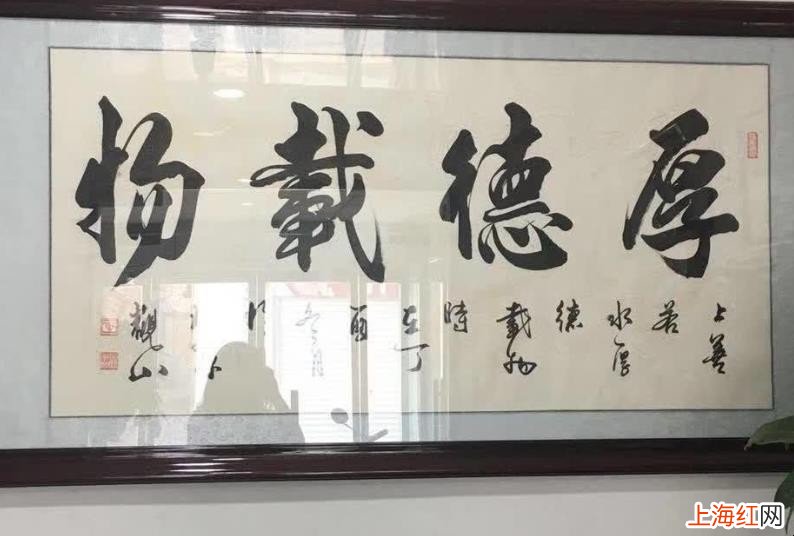 厚德載物
上善
若
水厚
德
載物
時
在丁
酉
冬月
觀山
上海红网